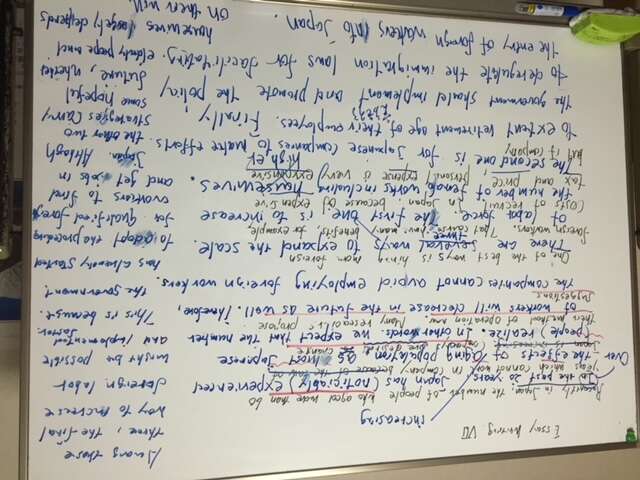 Essay Writing VII
increasing
Recently in Japan, the number of people who aged more than 60
Over In the past 20 years, Japan has (noticiably) experienced
years which cannot work in company because of the
the effects of aging population, as most Japanese
(people) realize. In other words, we expect that the number
their method of operation now. Many researchers propose
of workers will decrease in the future as well. Therefore,
suggestions
the companies cannot avoid employing foreign workers.
One of the best ways is hiring more foreign
There are several three ways to expand the scale
foreign workers. Just cause more benefits, for example,
of labor force. The first one is to increase
costs of recruit in Japan. because of expensive
the number of female works including housewives.
tax and price, personal expense is very expensive
The second one is for Japanese companies to make efforts
higher
to extent retirement age of their employees. Finally,
the government should implement and promote the policy
to deregulate the immigration laws for facilitating
the entry of foreign workers into Japan.
Among those
three, the final
way to increase
foreign labor
might be possible
and implemented
sooner.
This is because
the government
has already started
to adopt the proceeding
for qualified foreign
workers to find
and get jobs in
Japan. Although
the other two
strategies carry
some hopeful
future, whether
elderly people and
housewives largely depends
on their will